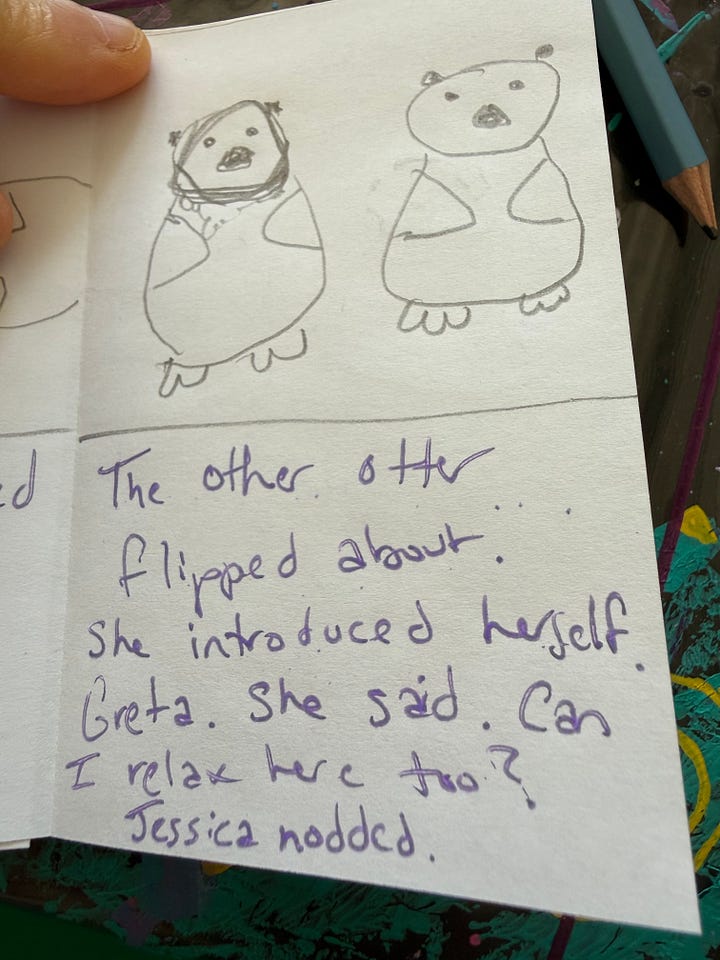 ed
The other otter
....
flipped about.
She introduced herself.
Greta. She said. Can
I relax here too?
Jessica nodded.